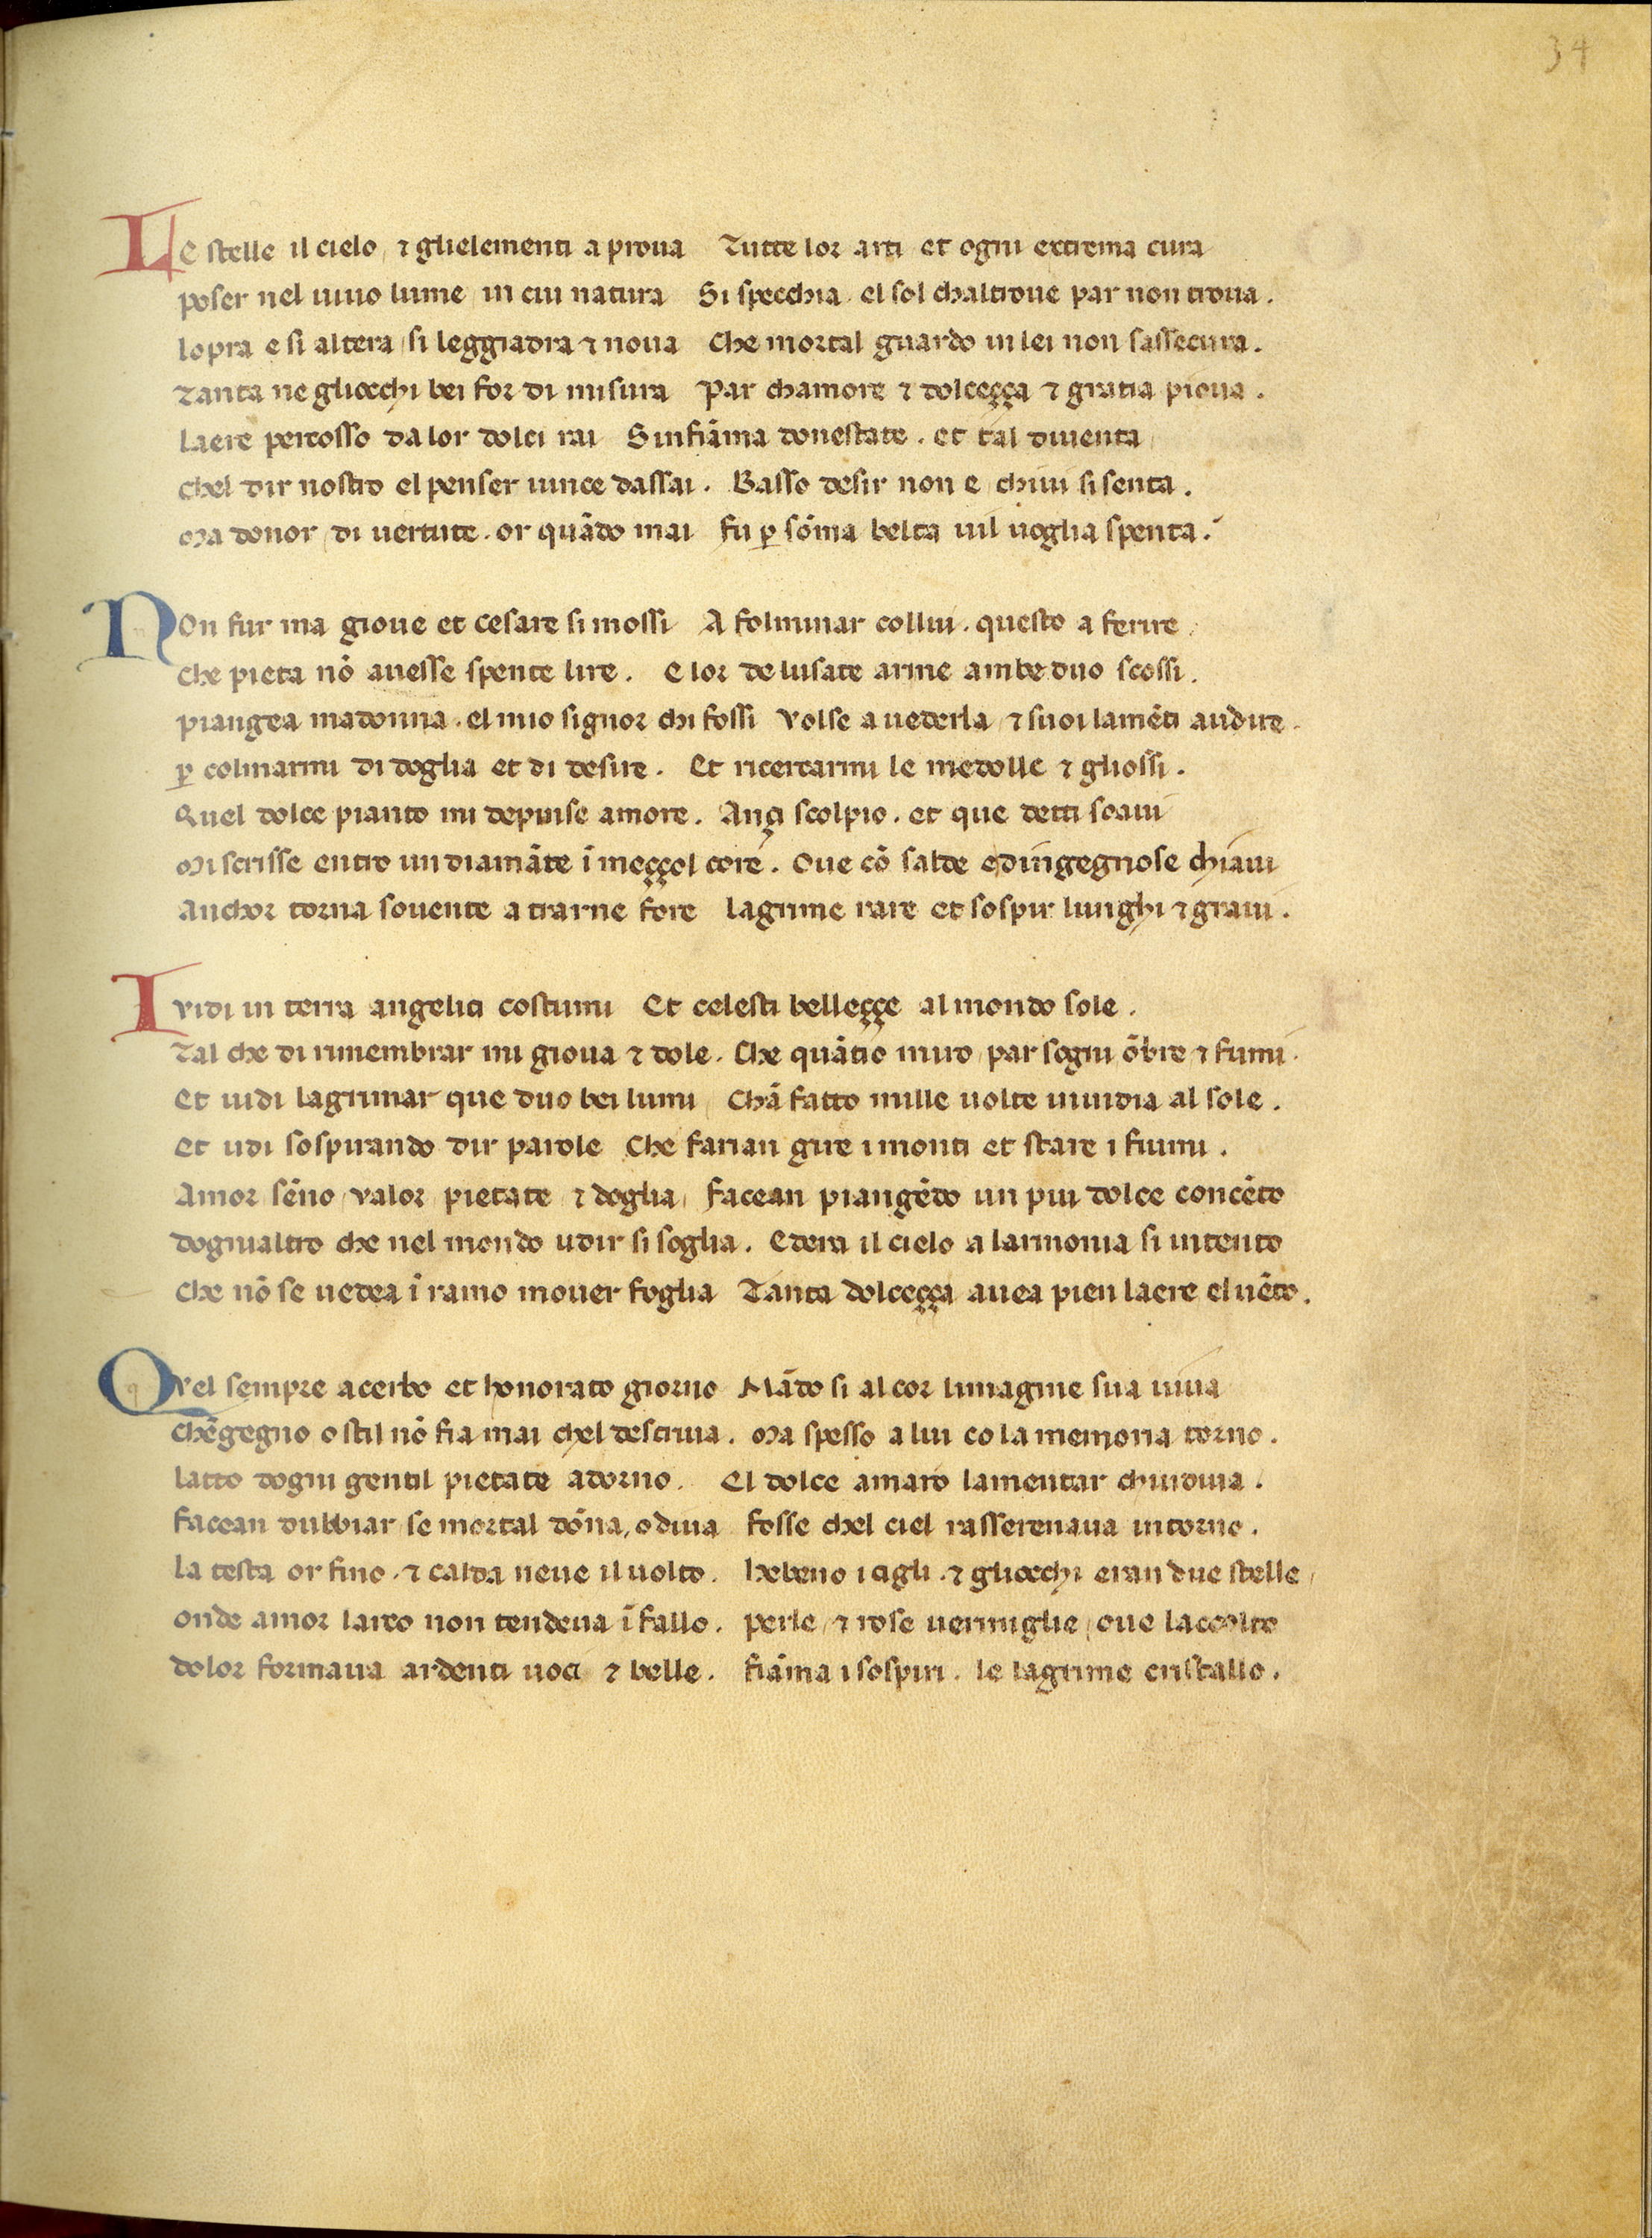 34
LE stelle il cielo / ⁊ glielementi a proua   Tutte lor arti et ogni extrema cura
poser nel uiuo lume / in cui natura   Si specchia . el sol chaltroue par non troua .
lopra e si altera / si leggiadra ⁊ noua   Che mortal guardo in lei non sassecura .
Tanta ne gliocchi bei for di misura   Par chamore ⁊ dolceçça ⁊ gratia pioua .
laere percosso da lor dolci rai   Sinfiāma donestate . et tal diuenta /
chel dir nostro el penser uince dassai .   Basso desir non e chiui si senta .
Ma donor / di uertute . or quādo mai   fu ꝑ sōma belta uil uoglia spenta .
NOn fur ma gioue et cesare si mossi   A folminar collui . questo a ferire /
che pieta nō auesse spente lire .   E lor de lusate arme ambe duo scossi .
piangea madonna . el mio signor chi fossi   Volse a uederla / ⁊ suoi lamēti audire .
ꝑ colmarmi di doglia et di desire .   Et ricercarmi le medolle ⁊ gliossi .
Quel dolce pianto mi depinse amore .   Ançi scolpio . et que detti soaui
Mi scrisse entro un diamāte ī meççol core .   Oue cō salde edingegnose chiaui
Anchor torna souente a trarne fore   lagrime rare et sospir lunghi ⁊ graui .
I Vidi in terra angelici costumi   Et celesti belleççe al mondo sole .
Tal che di rimembrar mi gioua ⁊ dole .   Che quāto miro / par sogni ōbre ⁊ fumi .
Et uidi lagrimar que duo bei lumi   Chā fatto mille uolte inuidia al sole .
Et udi sospirando dir parole   Che farian gire i monti et stare i fiumi .
Amor sēno / valor / pietate / ⁊ doglia /   facean piangēdo un piu dolce concēto
dognialtro che nel mondo udir si soglia .   Edera il cielo a larmonia si intento
che nō se uedea ī ramo mouer foglia   Tanta dolceçça auea pien laere el uēto .
QVel sempre acerbo et honorato giorno   Mādo si al cor limagine sua uiua
chēgegno o stil nō fia mai chel descriua .   Ma spesso a lui co la memoria torno .
latto dogni gentil pietate adorno .   El dolce amaro lamentar chiudiua .
facean dubbiar / se mortal dōna / o diua   fosse chel ciel rasserenaua intorno .
la testa or fino . ⁊ calda neue il uolto .   hebeno i cigli . ⁊ gliocchi eran due stelle /
onde amor larco non tendeua ī fallo .   perle / ⁊ rose uermiglie / oue laccolto
dolor formaua ardenti uoci ⁊ belle .   fiāma i sospiri . le lagrime cristallo .